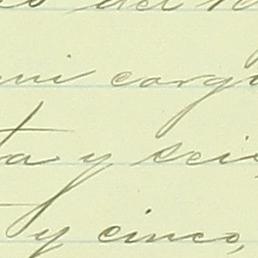 del
mi cargo
ta y seis
y cinco,